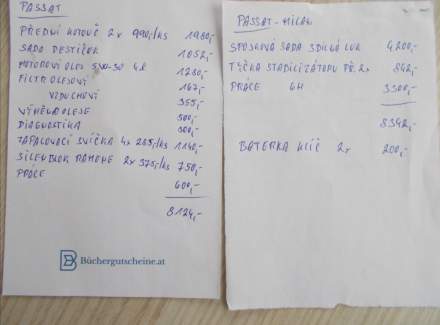 PASSAT
PŘEDNÍ KOTOUČ 2x 990,-/ks 1980,-
SADA DESTIČEK 1052,-
MOTOROVÝ OLEJ 5W-30 4l 1280,-
FILTR OLEJOVÝ 167,-
VZDUCHOVÝ 355,-
VÝMĚNA OLEJE 500,-
DIAGNOSTIKA 300,-
ZAPALOVACÍ SVÍČKA 4x 285,-/ks 1140,-
SILENTBLOK RAMENE 2x 375,-/ks 750,-
PRÁCE 600,-
8124,-
Büchergutscheine.at
PASSAT - MILAN
SPOJKOVÁ SADA 3 DÍLNÁ LUK 4200,-
TYČKA STABILIZÁTORU PŘ. 2x 842,-
PRÁCE 6H 3300,-
8342,-
BATERKA KLÍČ 2x 200,-